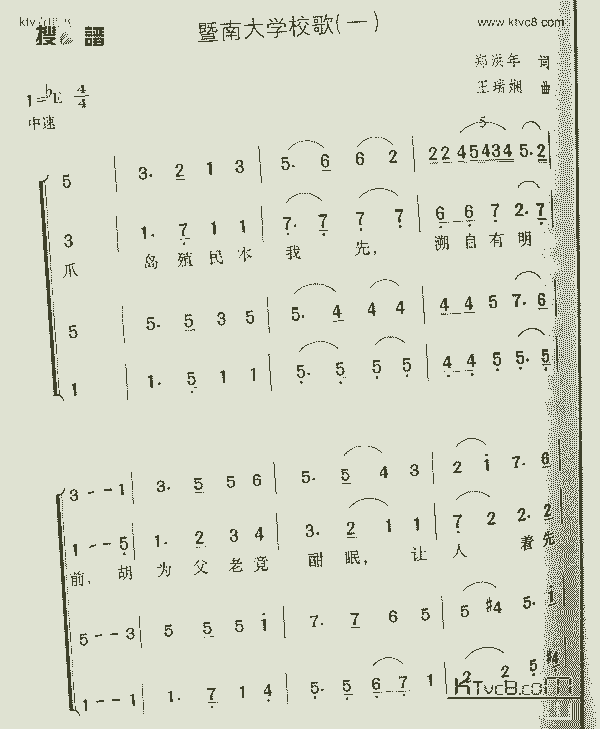 搜谱
暨南大学校歌(一)
www.ktvc8.com
郑洪年 词
王瑞娴 曲
1=♭E 4/4
中速
5 | 3. 2 1 3 | 5. 6 6 2 | 22 45434 5.2
3 | 1. 7 1 1 | 7. 7 7 7 | 6 6 7 2.7
爪 岛殖民本 我 先, 溯自有明
5 | 5. 5 3 5 | 5. 4 4 4 | 4 4 5 7.6
1 | 1. 5 1 1 | 5. 5 5 5 | 4 4 5 5.5
3--1 | 3. 5 5 6 | 5. 5 4 3 | 2 i 7. 6
1--5 | 1. 2 3 4 | 3. 2 1 1 | 7 2 2. 2
前, 胡 为父老竟 酣眠, 让 人 着先
5--3 | 5 5 5 i | 7. 7 6 5 | 5 #4 5. i
1--1 | 1. 7 1 4 | 5. 5 6 7 1 | 2 2 5 #4
KTvc8.com